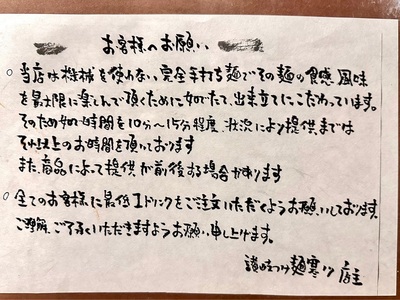 お客様へお願い
○当店は機械を使わない、完全手打ち麺でその麺の食感、風味
を最大限に楽しんで頂くために茹でたて、出来立てにこだわっています。
そのため茹で時間を10分〜15分程度、状況により提供までは
それ以上のお時間を頂いております
また、商品によって提供が前後する場合があります
○全てのお客様に最低1ドリンクをご注文いただくようお願いしております。
ご理解、ご了承いただきますようお願い申し上げます。
讃岐つけ麺寒川 店主